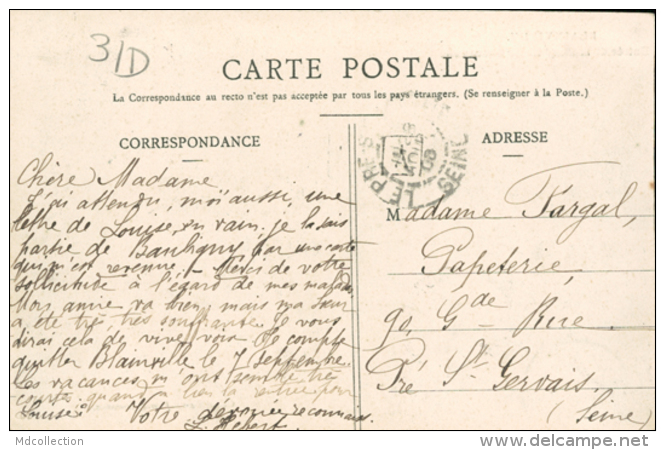 31D
CARTE POSTALE
La Correspondance au recto n'est pas acceptée par tous les pays étrangers. (Se renseigner à la Poste.)
CORRESPONDANCE
ADRESSE
LE PRÉ S
08
SEINE
Chère Madame
J'ai attendu, moi aussi, une
lettre de Louise, en vain. je la sais
partie de Bantigny par une carte
qui m'est revenue. Merci de votre
sollicitude à l'égard de mes malades
Mon amie va bien, mais ma sœur
a été très, très souffrante. Je vous
dirai cela de vive voix. Je compte
quitter Blainville le 7 Septembre.
Les vacances m'ont semblé très
courtes quand la rentrée pour
Louise? Votre reconnais.
L. Hébert
Madame Fargal,
Papeterie,
90, Gde Rue
Pré St Gervais.
(Seine)
Mdcollection
delcampe.net